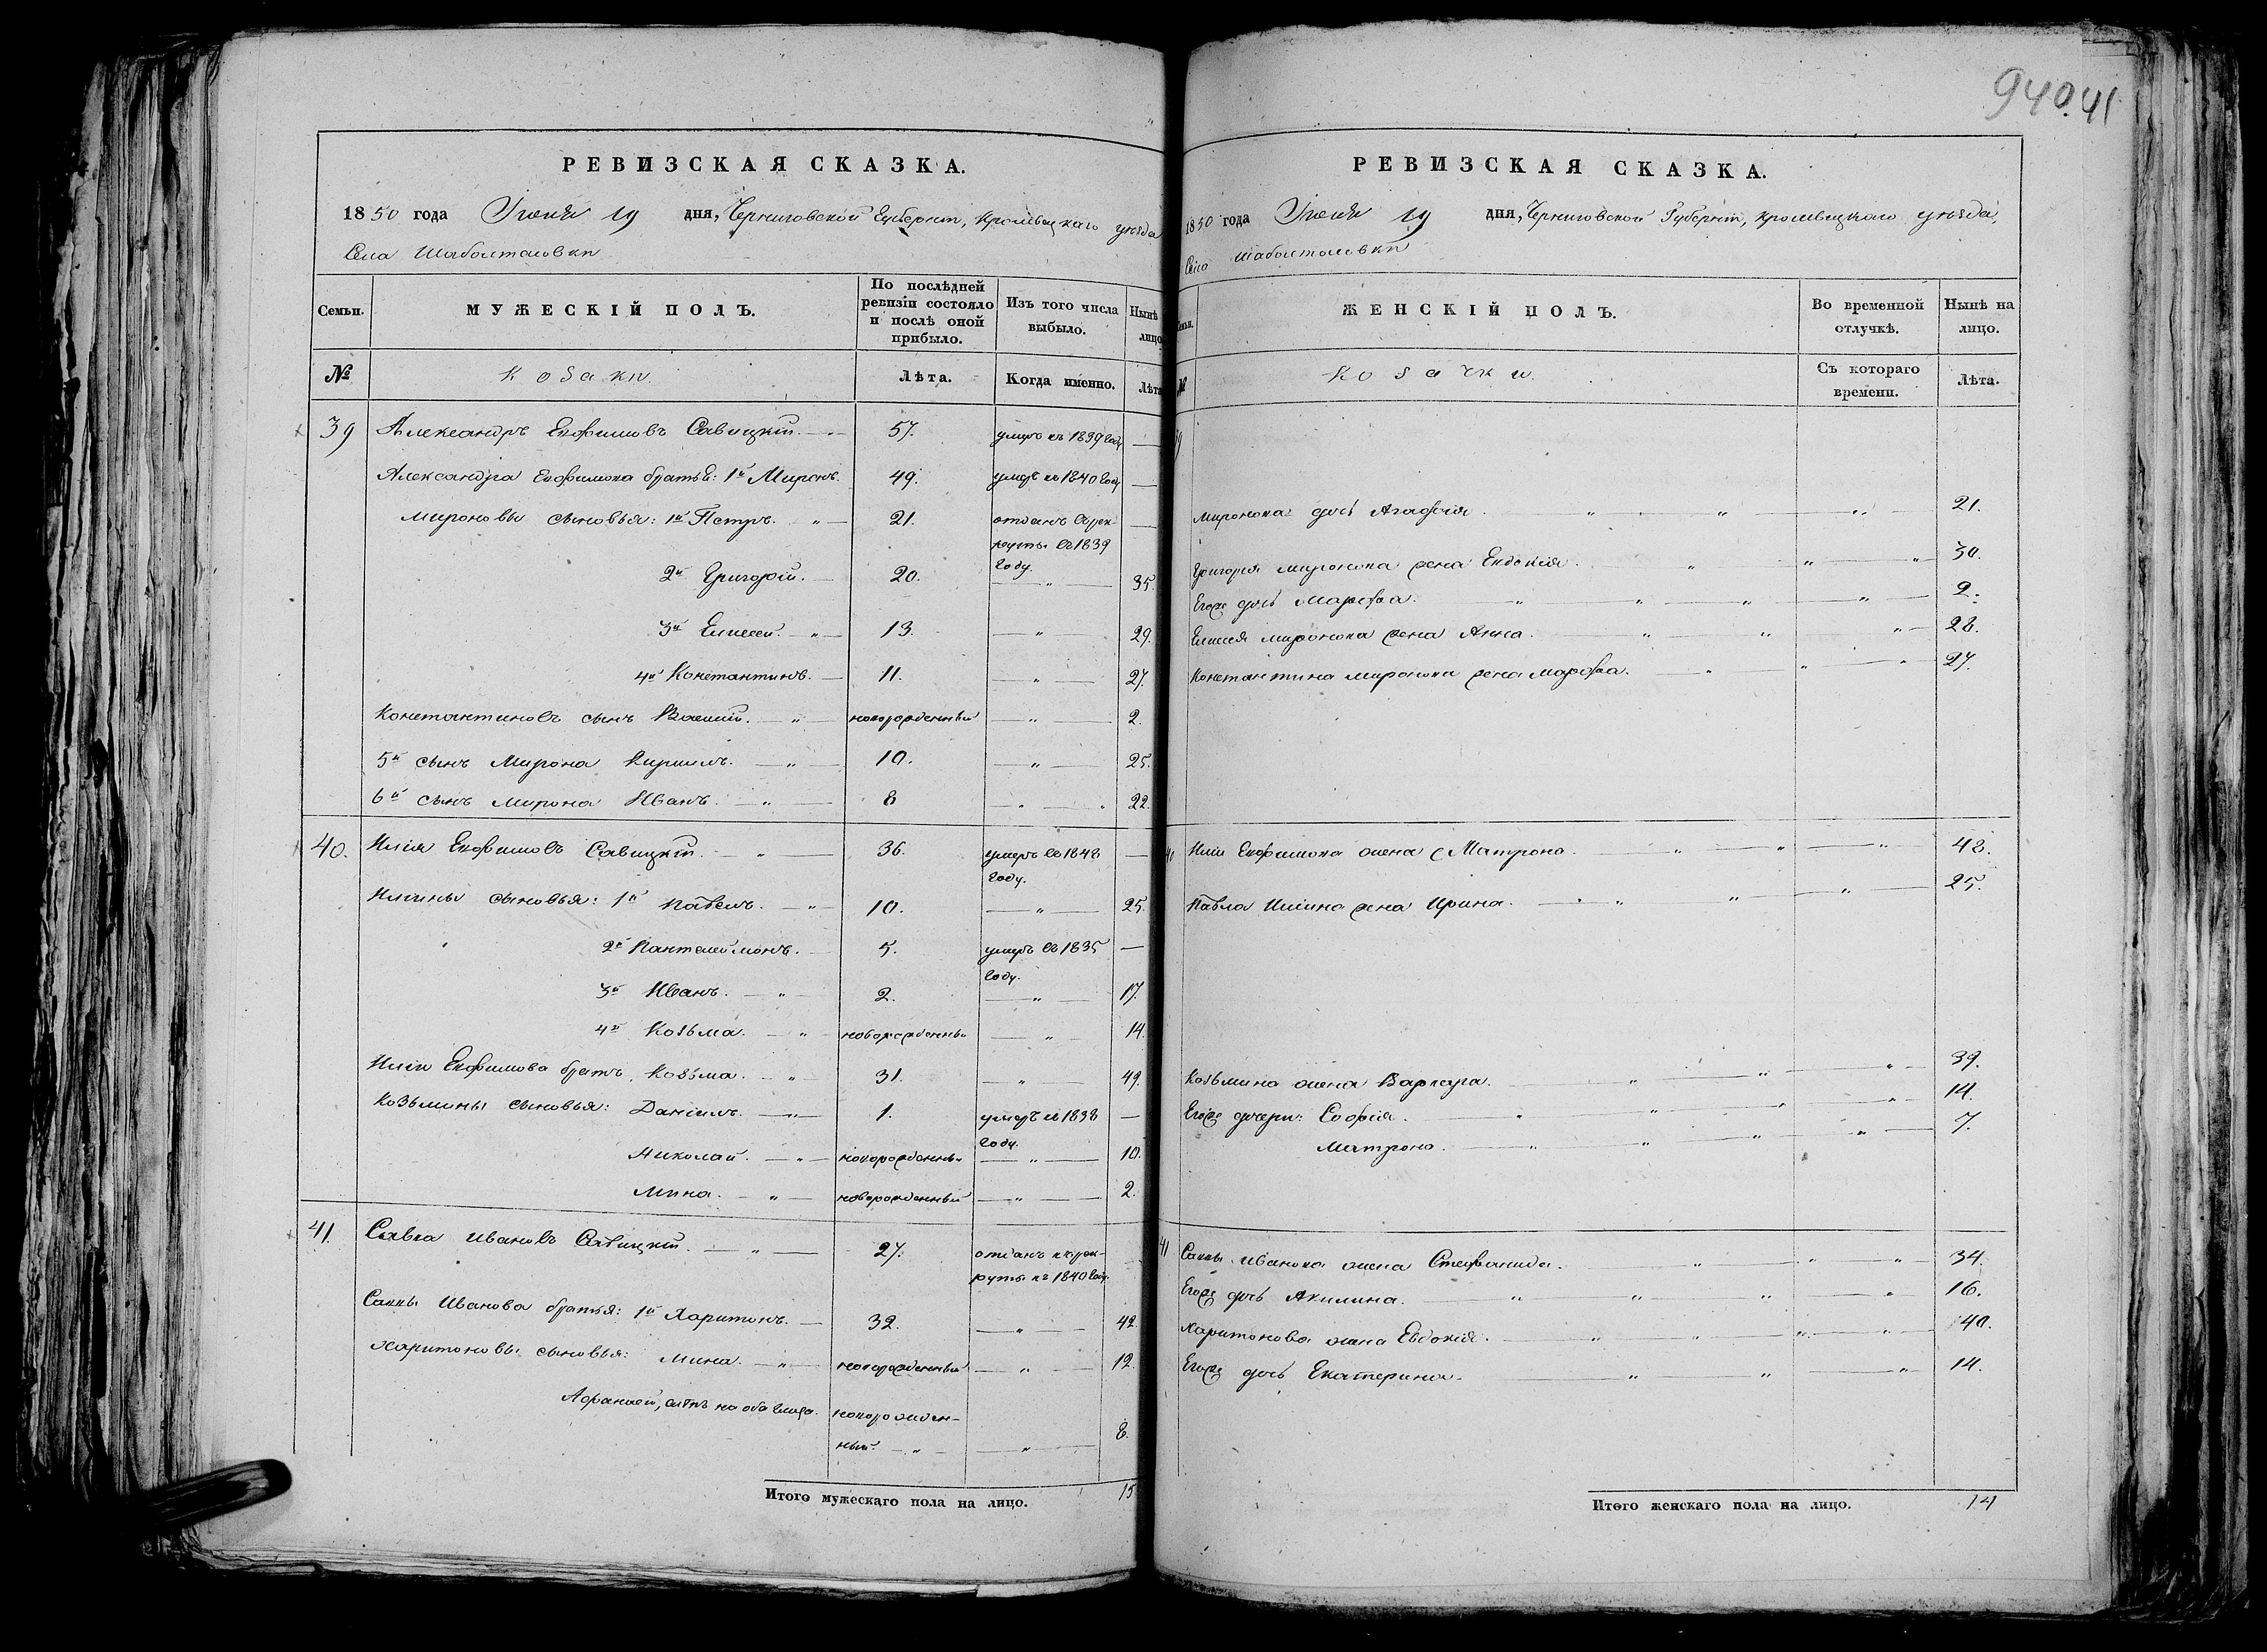 940.41
РЕВИЗСКАЯ СКАЗКА.
1850 года Июня 19 дня, Черниговской Губерніи, Кролевецкаго уѣзда
Села Шаболтасовки
Семьи. МУЖЕСКІЙ ПОЛЪ. По послѣдней ревизіи состояло и послѣ оной прибыло. Изъ того числа выбыло. Нынѣ лицо
№ Козаки. Лѣта. Когда именно. Лѣта
39 Александръ Евфимовъ Савицкій. 57. умеръ въ 1839 году —
Александра Евфимова братья: 1й Миронъ. 49. умеръ въ 1840 году —
Мироновы сыновья: 1й Петръ. 21. отданъ въ рек-
руты въ 1839
году.
2й Григорій. 20. — " — 35.
3й Елисей. 13. — " — 29.
4й Константинъ. 11. — " — 27.
Константиновъ сынъ Василій. новорожденный — " — 2.
5й сынъ Мирона Кириллъ. 10. — " — 25.
6й сынъ Мирона Иванъ. 8 — " — 22.
40. Илія Евфимовъ Савицкій. 36. умеръ въ 1848
году.
Иліины сыновья: 1й Павелъ. 10. — " — 25.
2й Пантелеймонъ. 5. умеръ въ 1835
году.
3й Иванъ. 2. — " — 17.
4й Козьма. новорожденный — " — 14.
Иліи Евфимова братъ Козьма. 31. — " — 49.
Козьмины сыновья: Даніилъ. 1. умеръ въ 1838
году.
Николай. новорожденный — " — 10.
Мина. новорожденный — " — 2.
41. Савва Ивановъ Савицкій. 27. отданъ въ рек-
руты въ 1840 году.
Саввы Иванова братья: 1й Харитонъ. 32. — " — 42.
Харитоновы сыновья: Мина. новорожденный — " — 12.
Афанасій, слѣпъ на оба глаза. новорожден-
ный. — " — 8.
Итого мужескаго пола на лицо. 15
РЕВИЗСКАЯ СКАЗКА.
1850 года Июня 19 дня, Черниговской Губерніи, Кролевецкаго уѣзда,
Село Шаболтасовки
Семьи. ЖЕНСКІЙ ПОЛЪ. Во временной отлучкѣ. Нынѣ на лицо.
№ Козачки. Съ котораго времени. Лѣта.
39
Миронова дочь Агафія. 21.
Григорія Миронова жена Евдокія. 30.
Егоже дочь Марфа. 2.
Елисея Миронова жена Анна. 28.
Константина Миронова жена Марфа. 27.
40 Иліи Евфимова жена Матрона. 48.
Павла Иліина жена Ирина. 25.
Козьмина жена Варвара. 39.
Егоже дочери: Софія. 14.
Матрона. 7.
41 Саввы Иванова жена Стефанида. 34.
Егоже дочь Акилина. 16.
Харитонова жена Евдокія. 40.
Егоже дочь Екатерина. 14.
Итого женскаго пола на лицо. 14